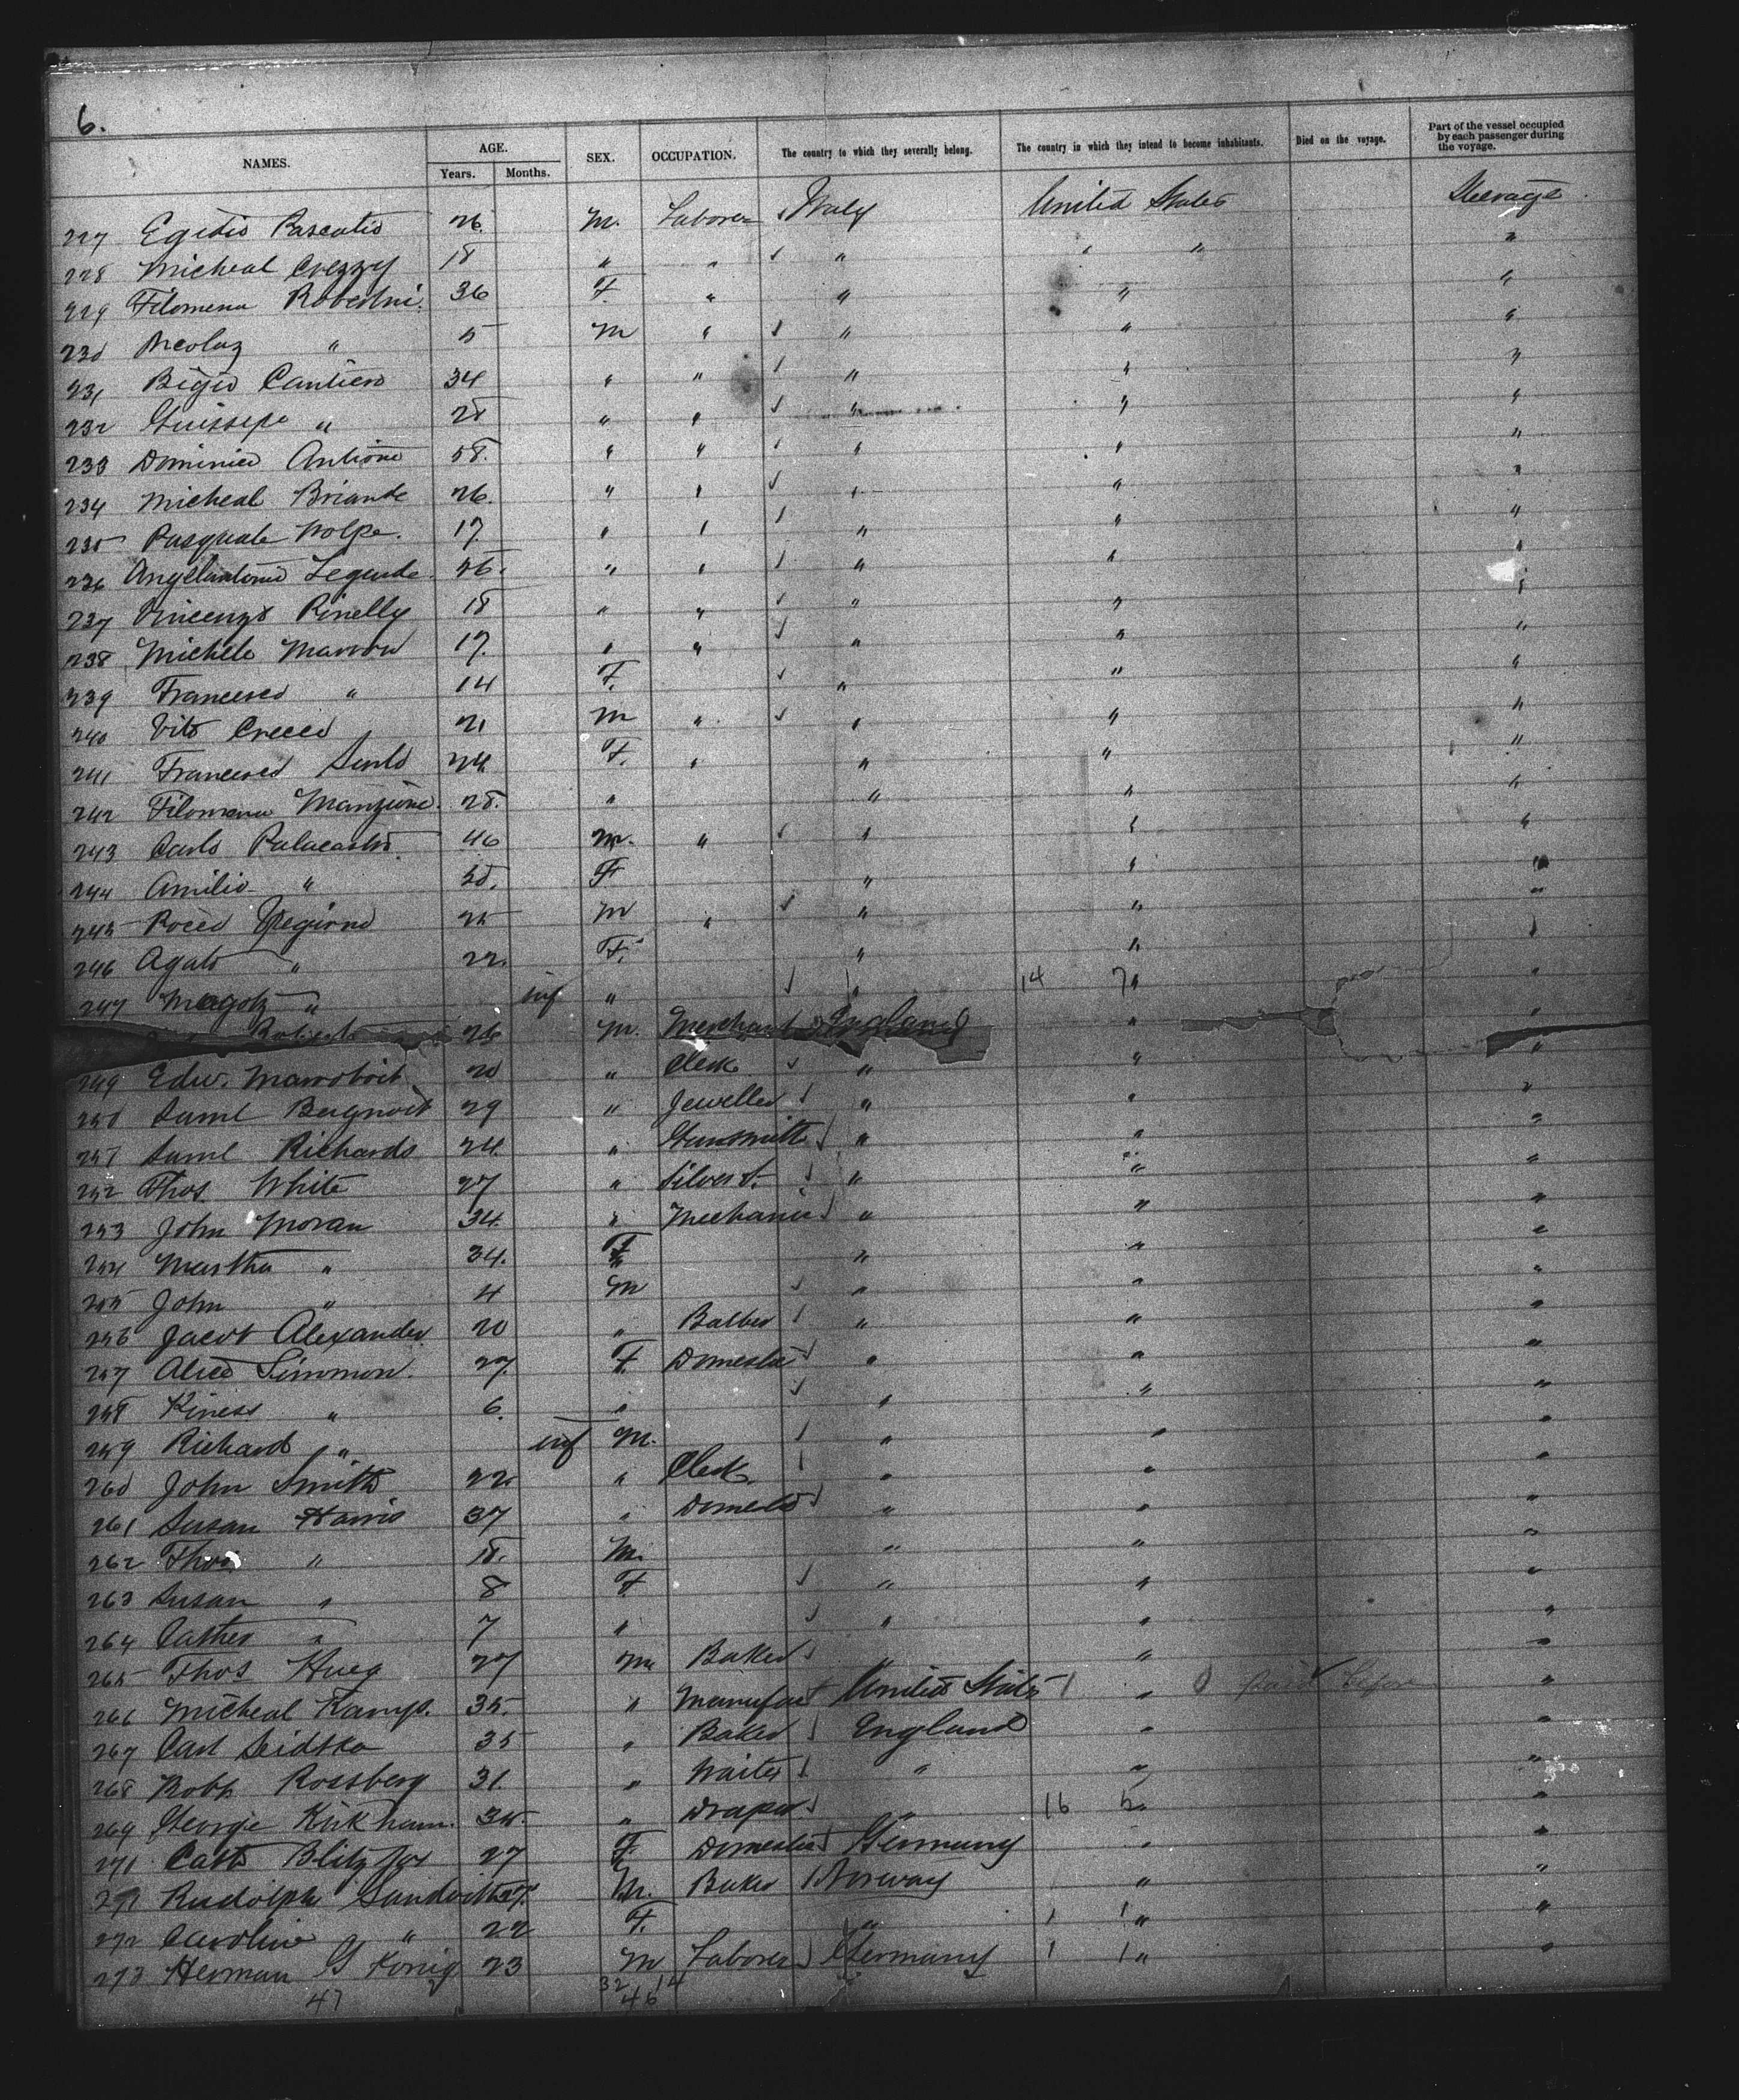 6.
NAMES. AGE. Years. Months. SEX. OCCUPATION. The country to which they severally belong. The country in which they intend to become inhabitants. Died on the voyage. Part of the vessel occupied by each passenger during the voyage.
227 Egidio 26 M. Laborer Italy United States Steerage
228 Micheal 18 " " " " " "
229 Filomena Robertini 36 F. " " " "
230 " 5 M " " " "
231 34 " " " " "
232 Guissepe " 28 " " " " "
233 Dominico Antione 58. " " " " "
234 Micheal Briande 26. " " " " "
235 Pasquale Wolpe. 17 " " " " "
236 Angelantonio Legende 56. " " " " "
237 Vincenzo Rinelly 18 " " " " "
238 Michele Marrow 17. " " " " "
239 Francesco " 14 F. " " "
240 Vito Crecco 21 M " " " "
241 Francesco 24 F. " " " "
242 Filomena Manzione. 28. " " " "
243 Carlo Palacastro 46 M. " " " "
244 Amilio " 50. F " " "
245 Rocco 25 M " " " "
246 Agato " 22. F. " " "
247 " inf " " 14 7 " "
26 M. Merchant England " "
249 Edw. 20 " Clerk " " "
250 Saml 29 " Jeweller " " "
251 Saml Richards 24 " Gunsmith " " "
252 Thos. White 27 " Silver S. " " "
253 John Moran 34 " Mechanic " " "
254 Martha " 34. F " " "
255 John " 4 M " " "
256 Jacob Alexander 20 " Barber " " "
257 Alice Simmon. 27. F. Domestic " " "
258 Kiness " 6. " " " "
259 Richard " inf M. " " "
260 John Smith 22 " Clerk " " "
261 Susan Harris 37 " Domestic " " "
262 Thos. " 18. M. " " "
263 Susan " 8 F " " "
264 " 7 " " " "
265 Thos Hueg 27 M Baker " " "
266 Micheal Kamp. 35. " Manufact United States 1 " 0 before "
267 Carl Seidtke 35 " Baker England " "
268 Robt Rossberg 31 " Waiter " " "
269 George Kirkham. 35. " Draper " 16 5 " "
271 Cath 27 F. Domestic Germany " "
271 Rudolph 27. M. Baker Norway " "
272 Caroline " 22 F. " 1 1 " "
273 Herman G König 23 M Laborer Germany 1 1 " "
47 32 14
46